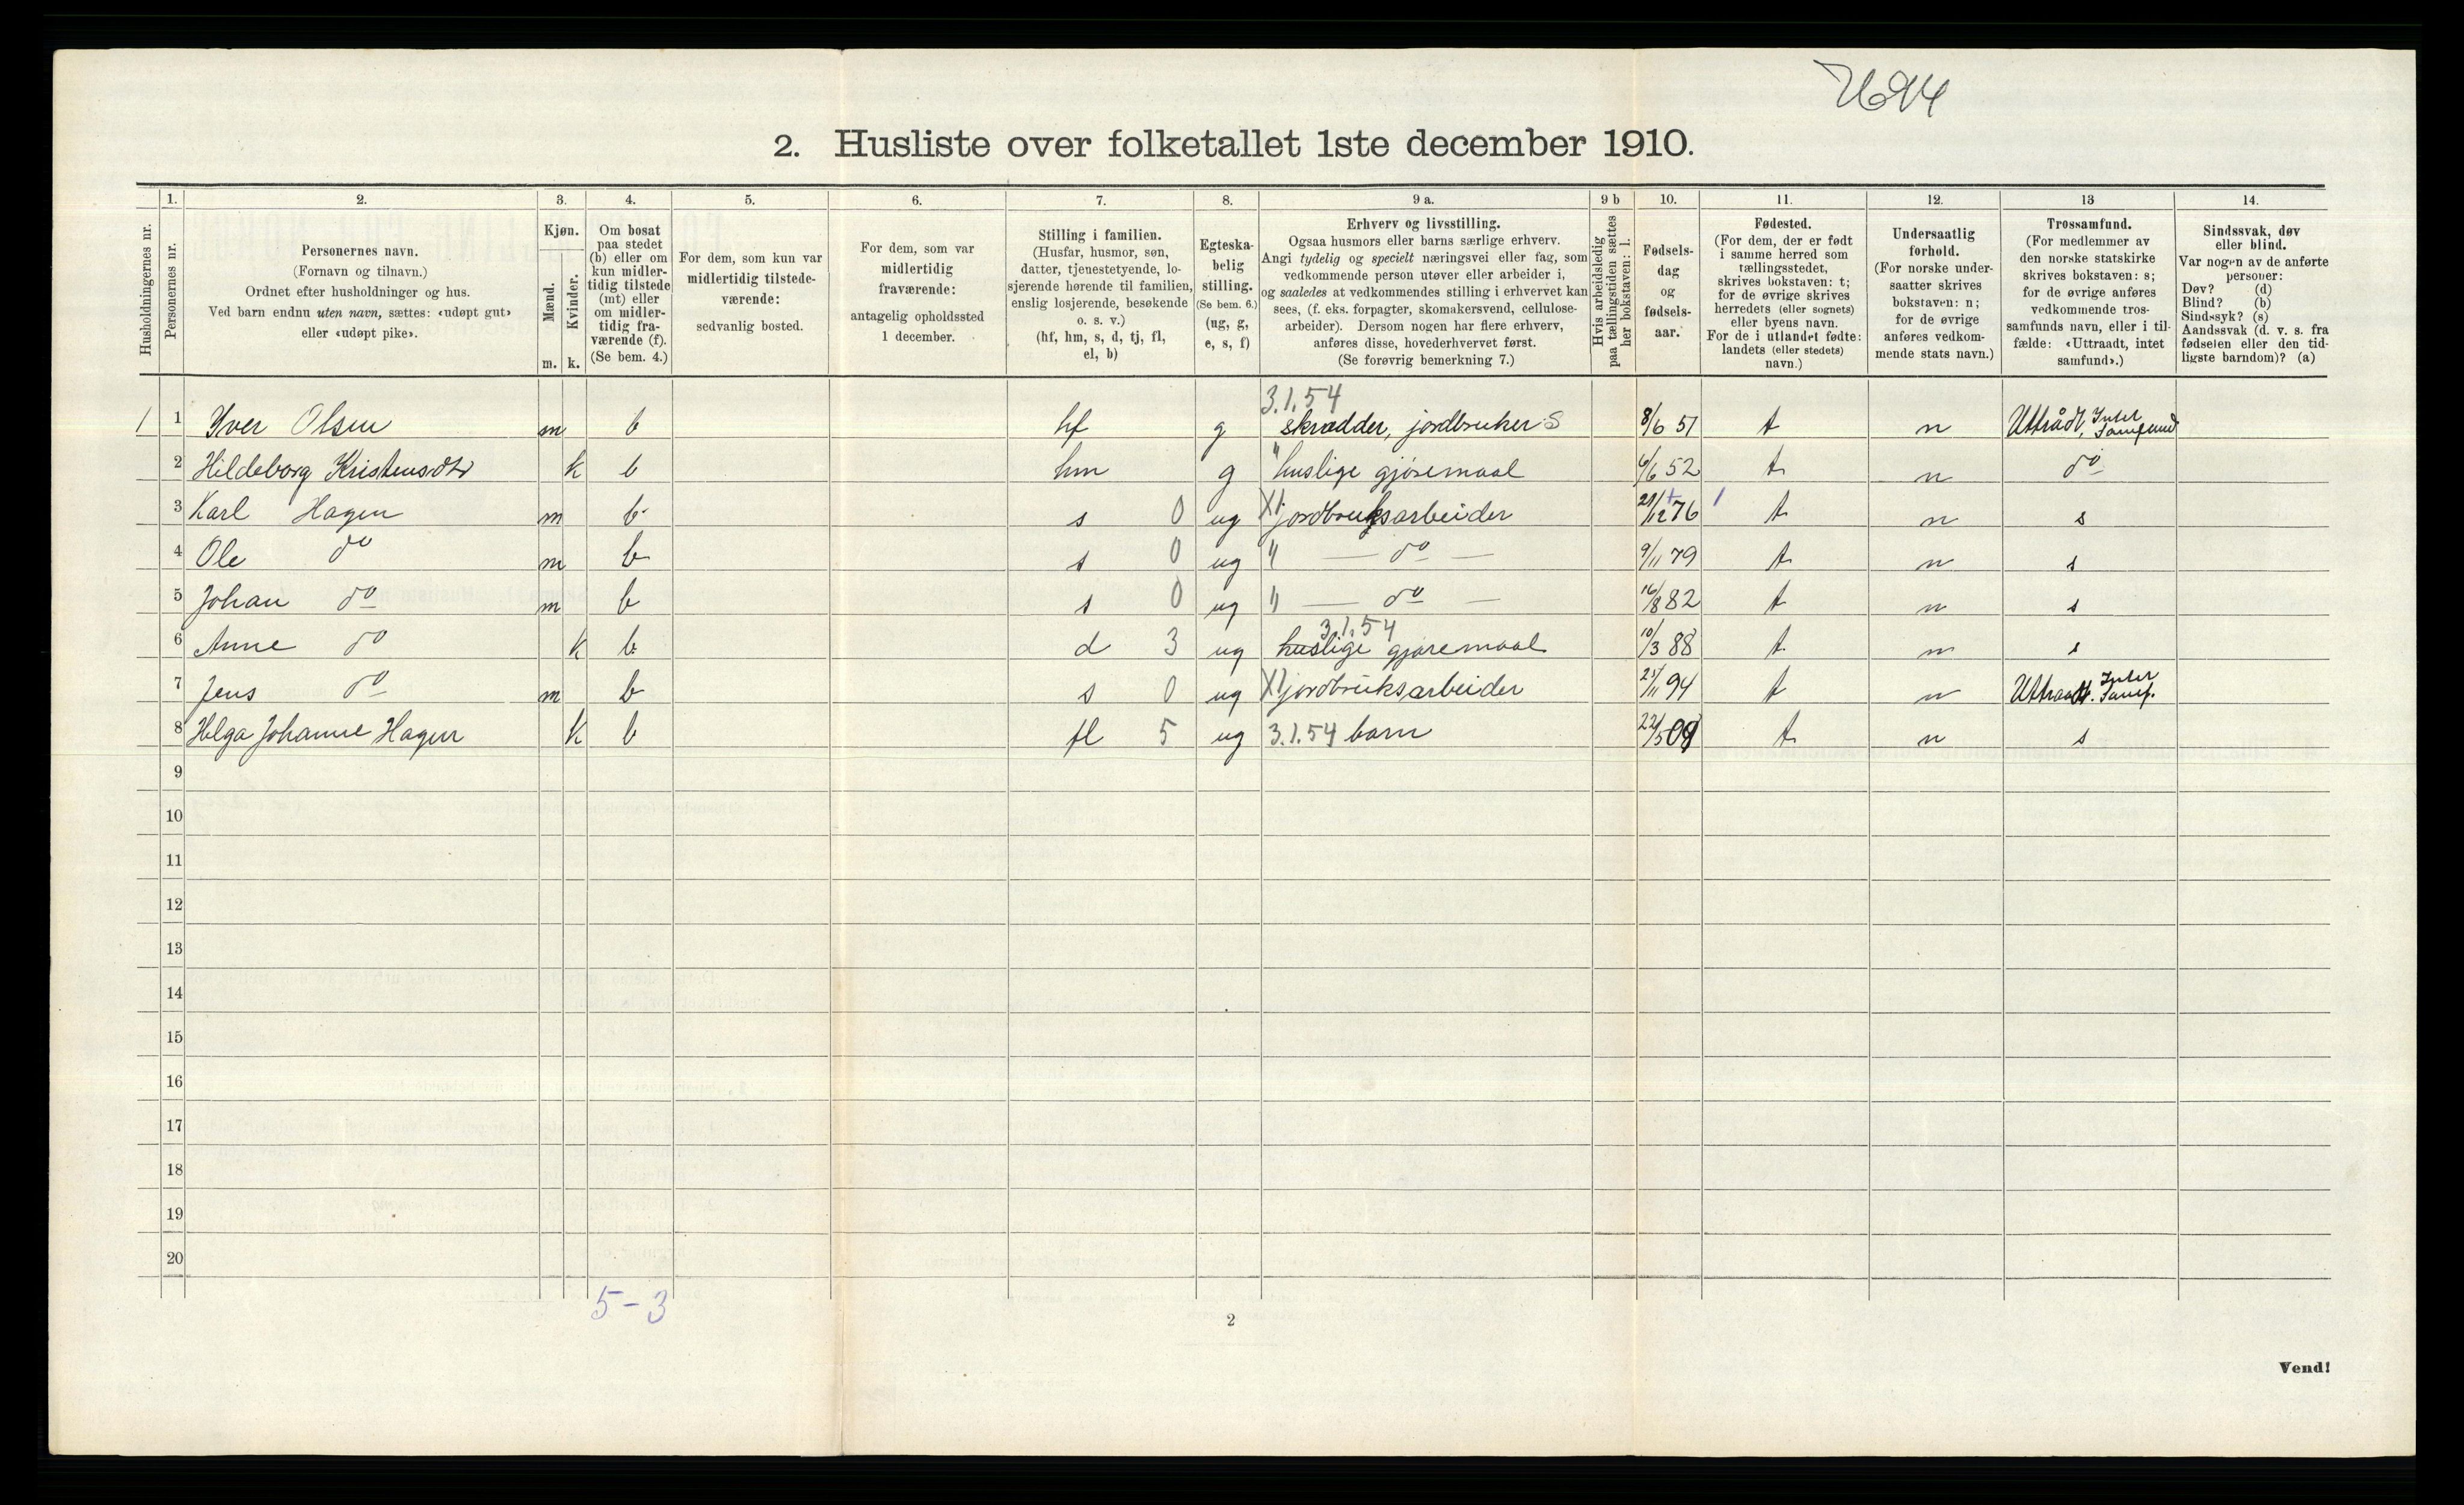 7694
2. Husliste over folketallet 1ste december 1910.
Husholdningernes nr.
1. Personernes nr.
2. Personernes navn.
(Fornavn og tilnavn.)
Ordnet efter husholdninger og hus.
Ved barn endnu uten navn, sættes: «udøpt gut»
eller «udøpt pike».
3. Kjøn.
Mænd. m.
Kvinder. k.
4. Om bosat
paa stedet
(b) eller om
kun midler-
tidig tilstede
(mt) eller
om midler-
tidig fra-
værende (f).
(Se bem. 4.)
5. For dem, som kun var
midlertidig tilstede-
værende:
sedvanlig bosted.
6. For dem, som var
midlertidig
fraværende:
antagelig opholdssted
1 december.
7. Stilling i familien.
(Husfar, husmor, søn,
datter, tjenestetyende, lo-
sjerende hørende til familien,
enslig losjerende, besøkende
o. s. v.)
(hf, hm, s, d, tj, fl,
el, b)
8. Egteska-
belig
stilling.
(Se bem. 6.)
(ug, g,
e, s, f)
9 a. Erhverv og livsstilling.
Ogsaa husmors eller barns særlige erhverv.
Angi tydelig og specielt næringsvei eller fag, som
vedkommende person utøver eller arbeider i,
og saaledes at vedkommendes stilling i erhvervet kan
sees, (f. eks. forpagter, skomakersvend, cellulose-
arbeider). Dersom nogen har flere erhverv,
anføres disse, hovederhvervet først.
(Se forøvrig bemerkning 7.)
9 b Hvis arbeidsledig
paa tællingstiden sættes
her bokstaven: l.
10. Fødsels-
dag
og
fødsels-
aar.
11. Fødested.
(For dem, der er født
i samme herred som
tællingsstedet,
skrives bokstaven: t;
for de øvrige skrives
herredets (eller sognets)
eller byens navn.
For de i utlandet fødte:
landets (eller stedets)
navn.)
12. Undersaatlig
forhold.
(For norske under-
saatter skrives
bokstaven: n;
for de øvrige
anføres vedkom-
mende stats navn.)
13 Trossamfund.
(For medlemmer av
den norske statskirke
skrives bokstaven: s;
for de øvrige anføres
vedkommende tros-
samfunds navn, eller i til-
fælde: «Uttraadt, intet
samfund».)
14. Sindssvak, døv
eller blind.
Var nogen av de anførte
personer:
Døv? (d)
Blind? (b)
Sindssyk? (s)
Aandssvak (d. v. s. fra
fødselen eller den tid-
ligste barndom)? (a)
3.1.54
1 1 Iver Olsen m b hf g skrædder, jordbruker S 8/6 51 t n Uttrådt, Intet Samfund
2 Hildeborg Kristensdtr k b hm g " huslige gjøremaal 6/6 52 t n do
3 Karl Hagen m b s 0 ug X1 jordbruksarbeider 21/12 76 t n s
4 Ole do m b s 0 ug " — do — 9/11 79 t n s
5 Johan do m b s 0 ug " — do — 16/8 82 t n s
3.1.54
6 Anne do k b d 3 ug huslige gjøremaal 10/3 88 t n s
7 Jens do m b s 0 ug X1 jordbruksarbeider 21/11 94 t n Uttraadt. Intet Samf.
8 Helga Johanne Hagen k b fl 5 ug 3.1.54 barn 22/5 09 t n s
9
10
11
12
13
14
15
16
17
18
19
20
5-3
2
Vend!